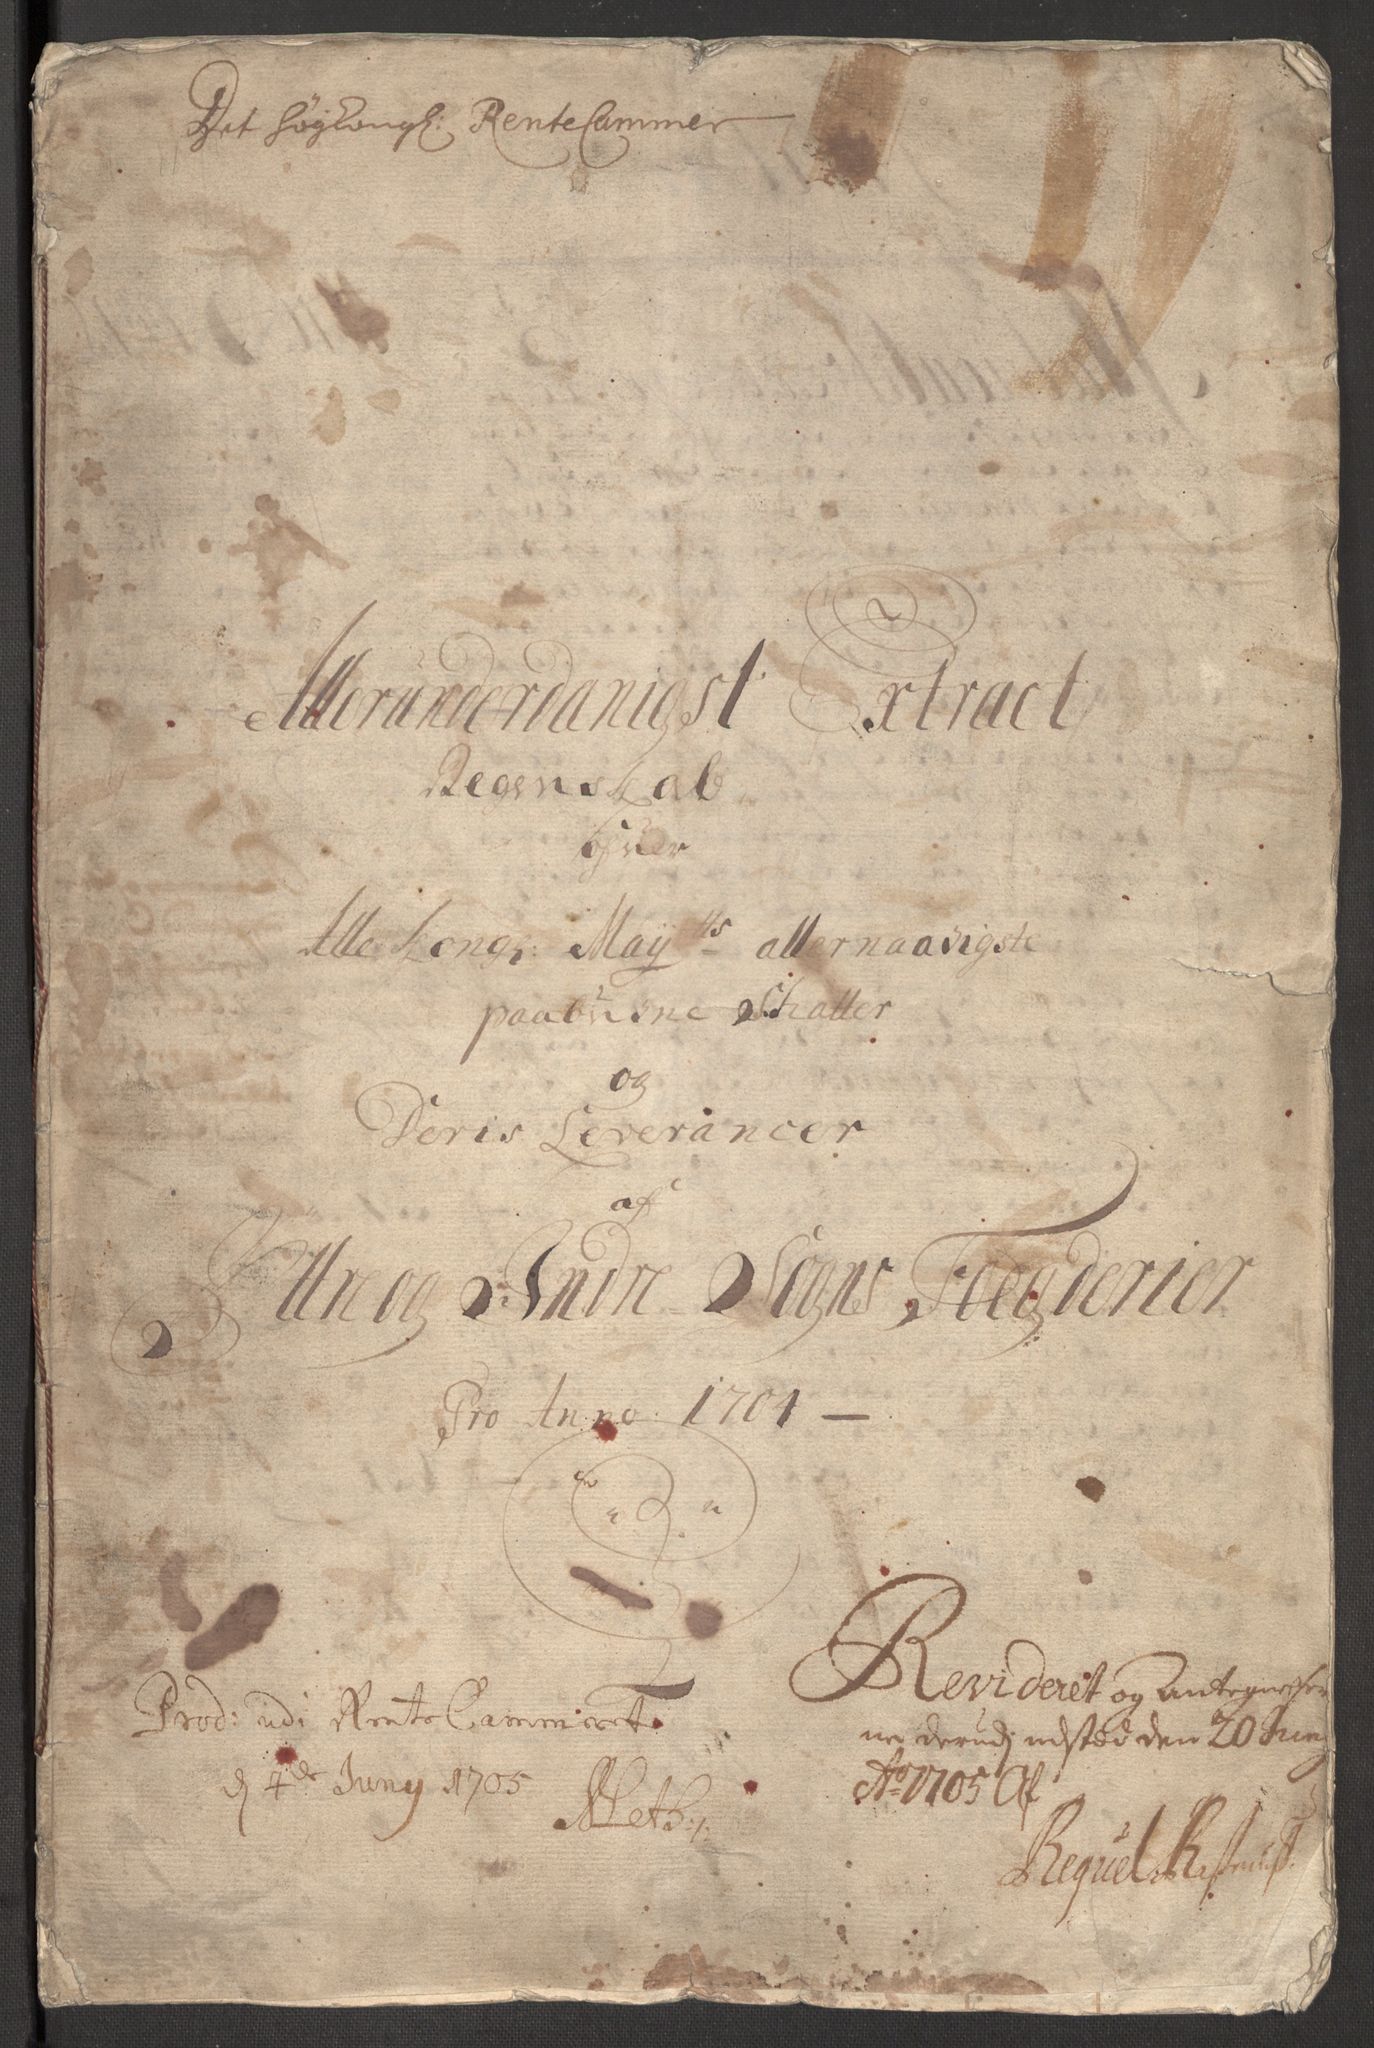 Det høykongl: RenteCammer
Allerunderdanigst Extract
Regenskab
ofver
Alle Kongl: Maÿ^ts allernaadigste
paabudne Schatter
og
Deris Leverancer
af
Yttre og Indre Sogns Foegderier
Pro Anno 1704 —
Prod: udi RenteCammeret
d 4de Juny 1705
Revideret og Antegnelser
ne derudj udsted den 20 Juny
Ao 1705 Af